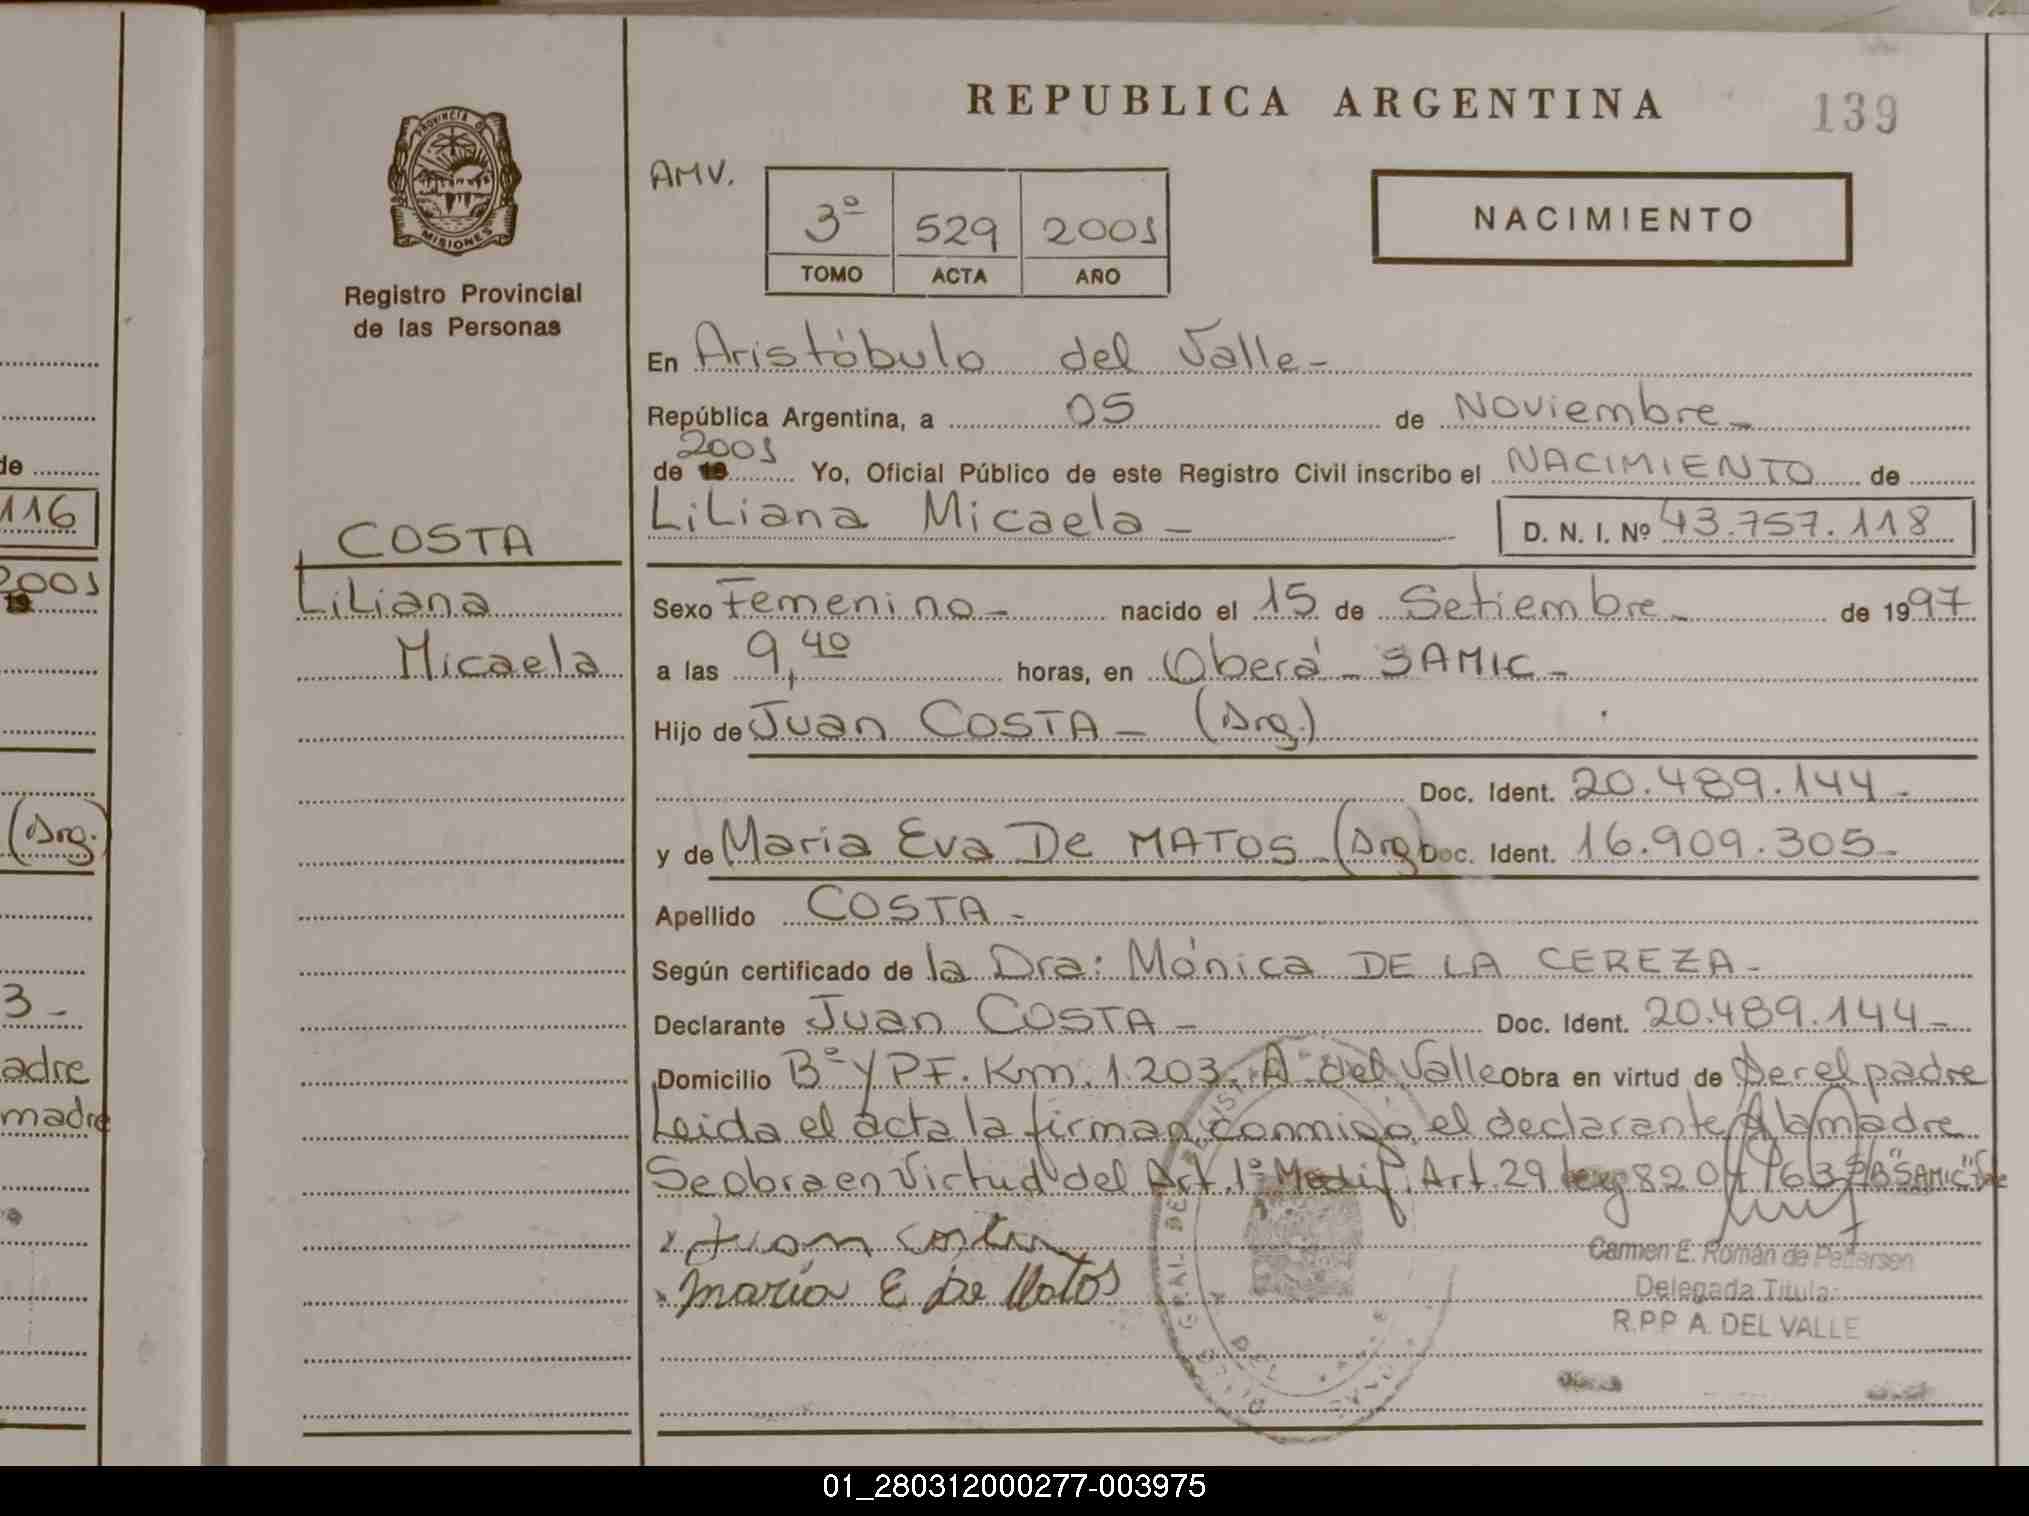 REPUBLICA ARGENTINA
139
PROVINCIA DE
MISIONES
Registro Provincial
de las Personas
AMV.
3º 529 2001
TOMO ACTA AÑO
NACIMIENTO
En Aristóbulo del Valle-
República Argentina, a 05 de Noviembre-
de 2001 Yo, Oficial Público de este Registro Civil inscribo el NACIMIENTO de
Liliana Micaela - D. N. I. Nº 43.757.118
COSTA
Liliana
Micaela
Sexo Femenino- nacido el 15 de Setiembre- de 1997
a las 9,40 horas, en Oberá - SAMIC-
Hijo de Juan COSTA - (Arg.)
Doc. Ident. 20.489.144-
y de Maria Eva De MATOS-(Arg) Doc. Ident. 16.909.305-
Apellido COSTA-
Según certificado de la Dra: Mónica DE LA CEREZA-
Declarante Juan COSTA- Doc. Ident. 20.489.144-
Domicilio Bº YPF. Km. 1.203. A. del Valle Obra en virtud de Ser el padre
Leida el acta la firman conmigo el declarante y la madre
Se obra en Virtud del Art. 1º Modif. Art. 29 ley 8204/63 "SAMIC"
Juan costa
maria E De Matos
Carmen E. Román de Pedersen
Delegada Titular
R.P.P A. DEL VALLE
de
116
2001
(Arg.)
3-
adre
madre
01_280312000277-003975